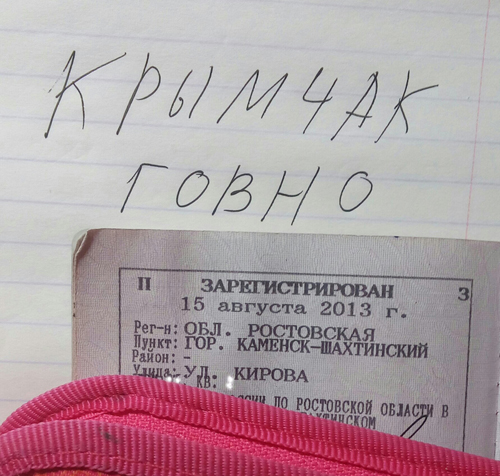 КРЫМЧАК
ГОВНО
П ЗАРЕГИСТРИРОВАН З
15 августа 2013 г.
Рег-н: ОБЛ. РОСТОВСКАЯ
Пункт: ГОР. КАМЕНСК-ШАХТИНСКИЙ
Район: -
Улица: УЛ. КИРОВА
КВ.
ПО РОСТОВСКОЙ ОБЛАСТИ В